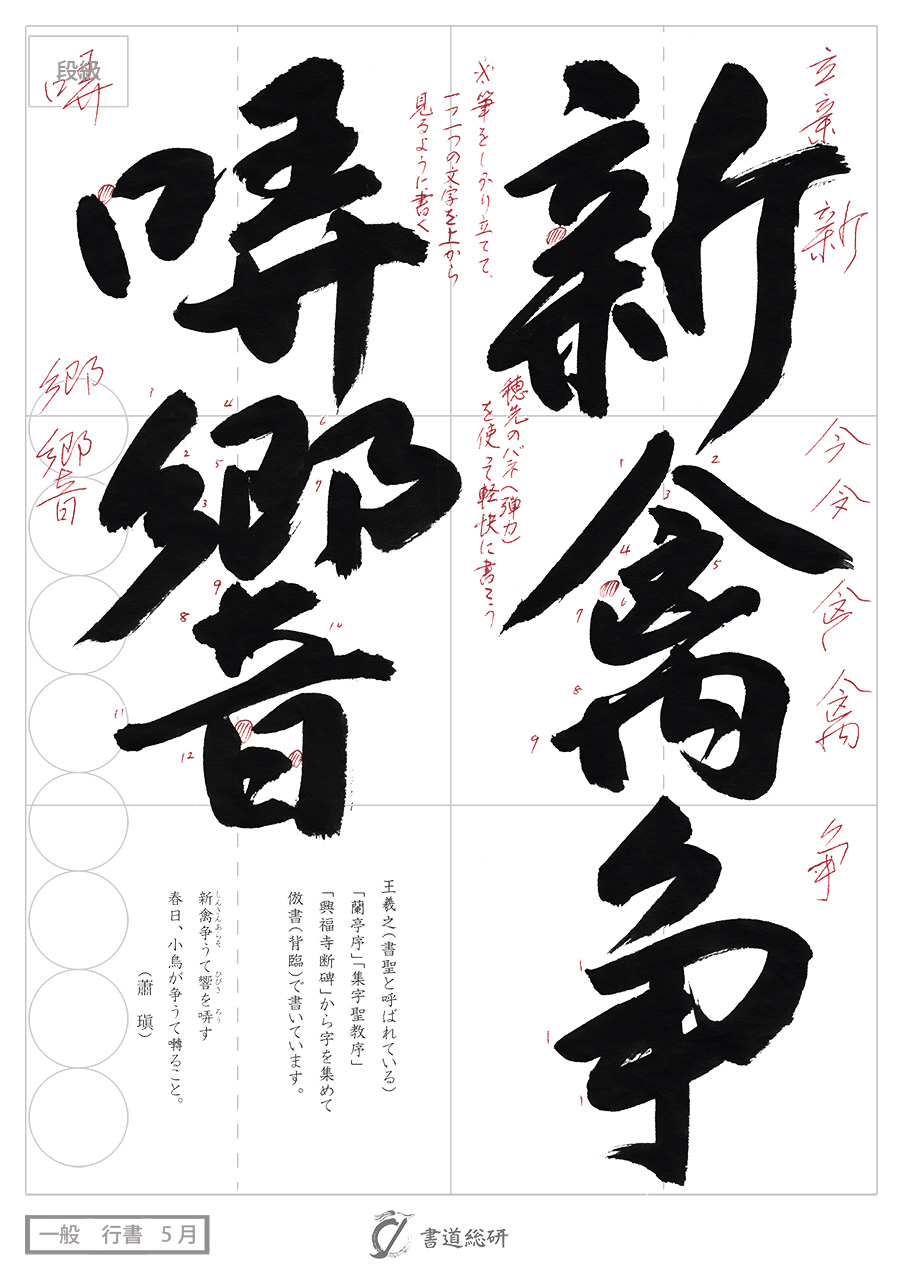 新禽争
哢響
立 亲 新
今 令 禽 禽
争
※筆をしっかり立てて、
一つ一つの文字を上から
見るように書く
穂先のバネ(弾力)
を使って軽快に書こう
哢
郷
響
段級
王羲之(書聖と呼ばれている)
「蘭亭序」「集字聖教序」
「興福寺断碑」から字を集めて
倣書(背臨)で書いています。
新禽争うて響を哢す
しんきんあらそ ひびき ろう
春日、小鳥が争うて囀ること。
(蕭 瑱)
一般 行書 5月
書道総研